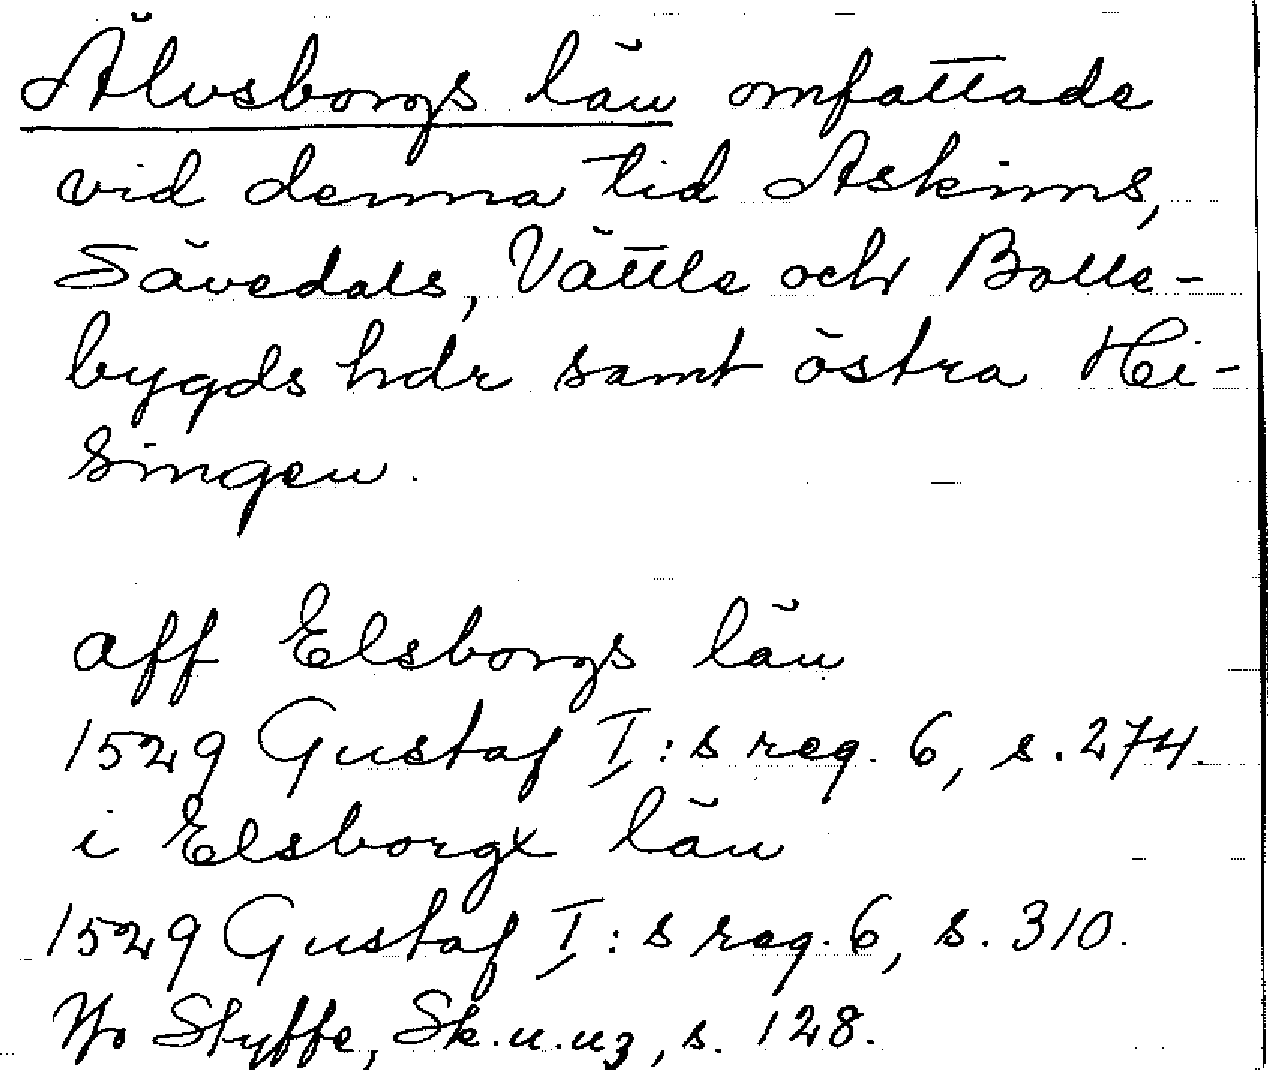 Älvsborgs län omfattade
vid denna tid Askims,
Sävedals, Vättle och Bolle-
bygds hdr samt östra Hi-
singen.
aff Elsborgs län
1529 Gustaf I:s reg. 6, s. 274.
i Elsborgx län
1529 Gustaf I:s reg. 6, s. 310.
Jfr Styffe, Sk. u. u3, s. 128.